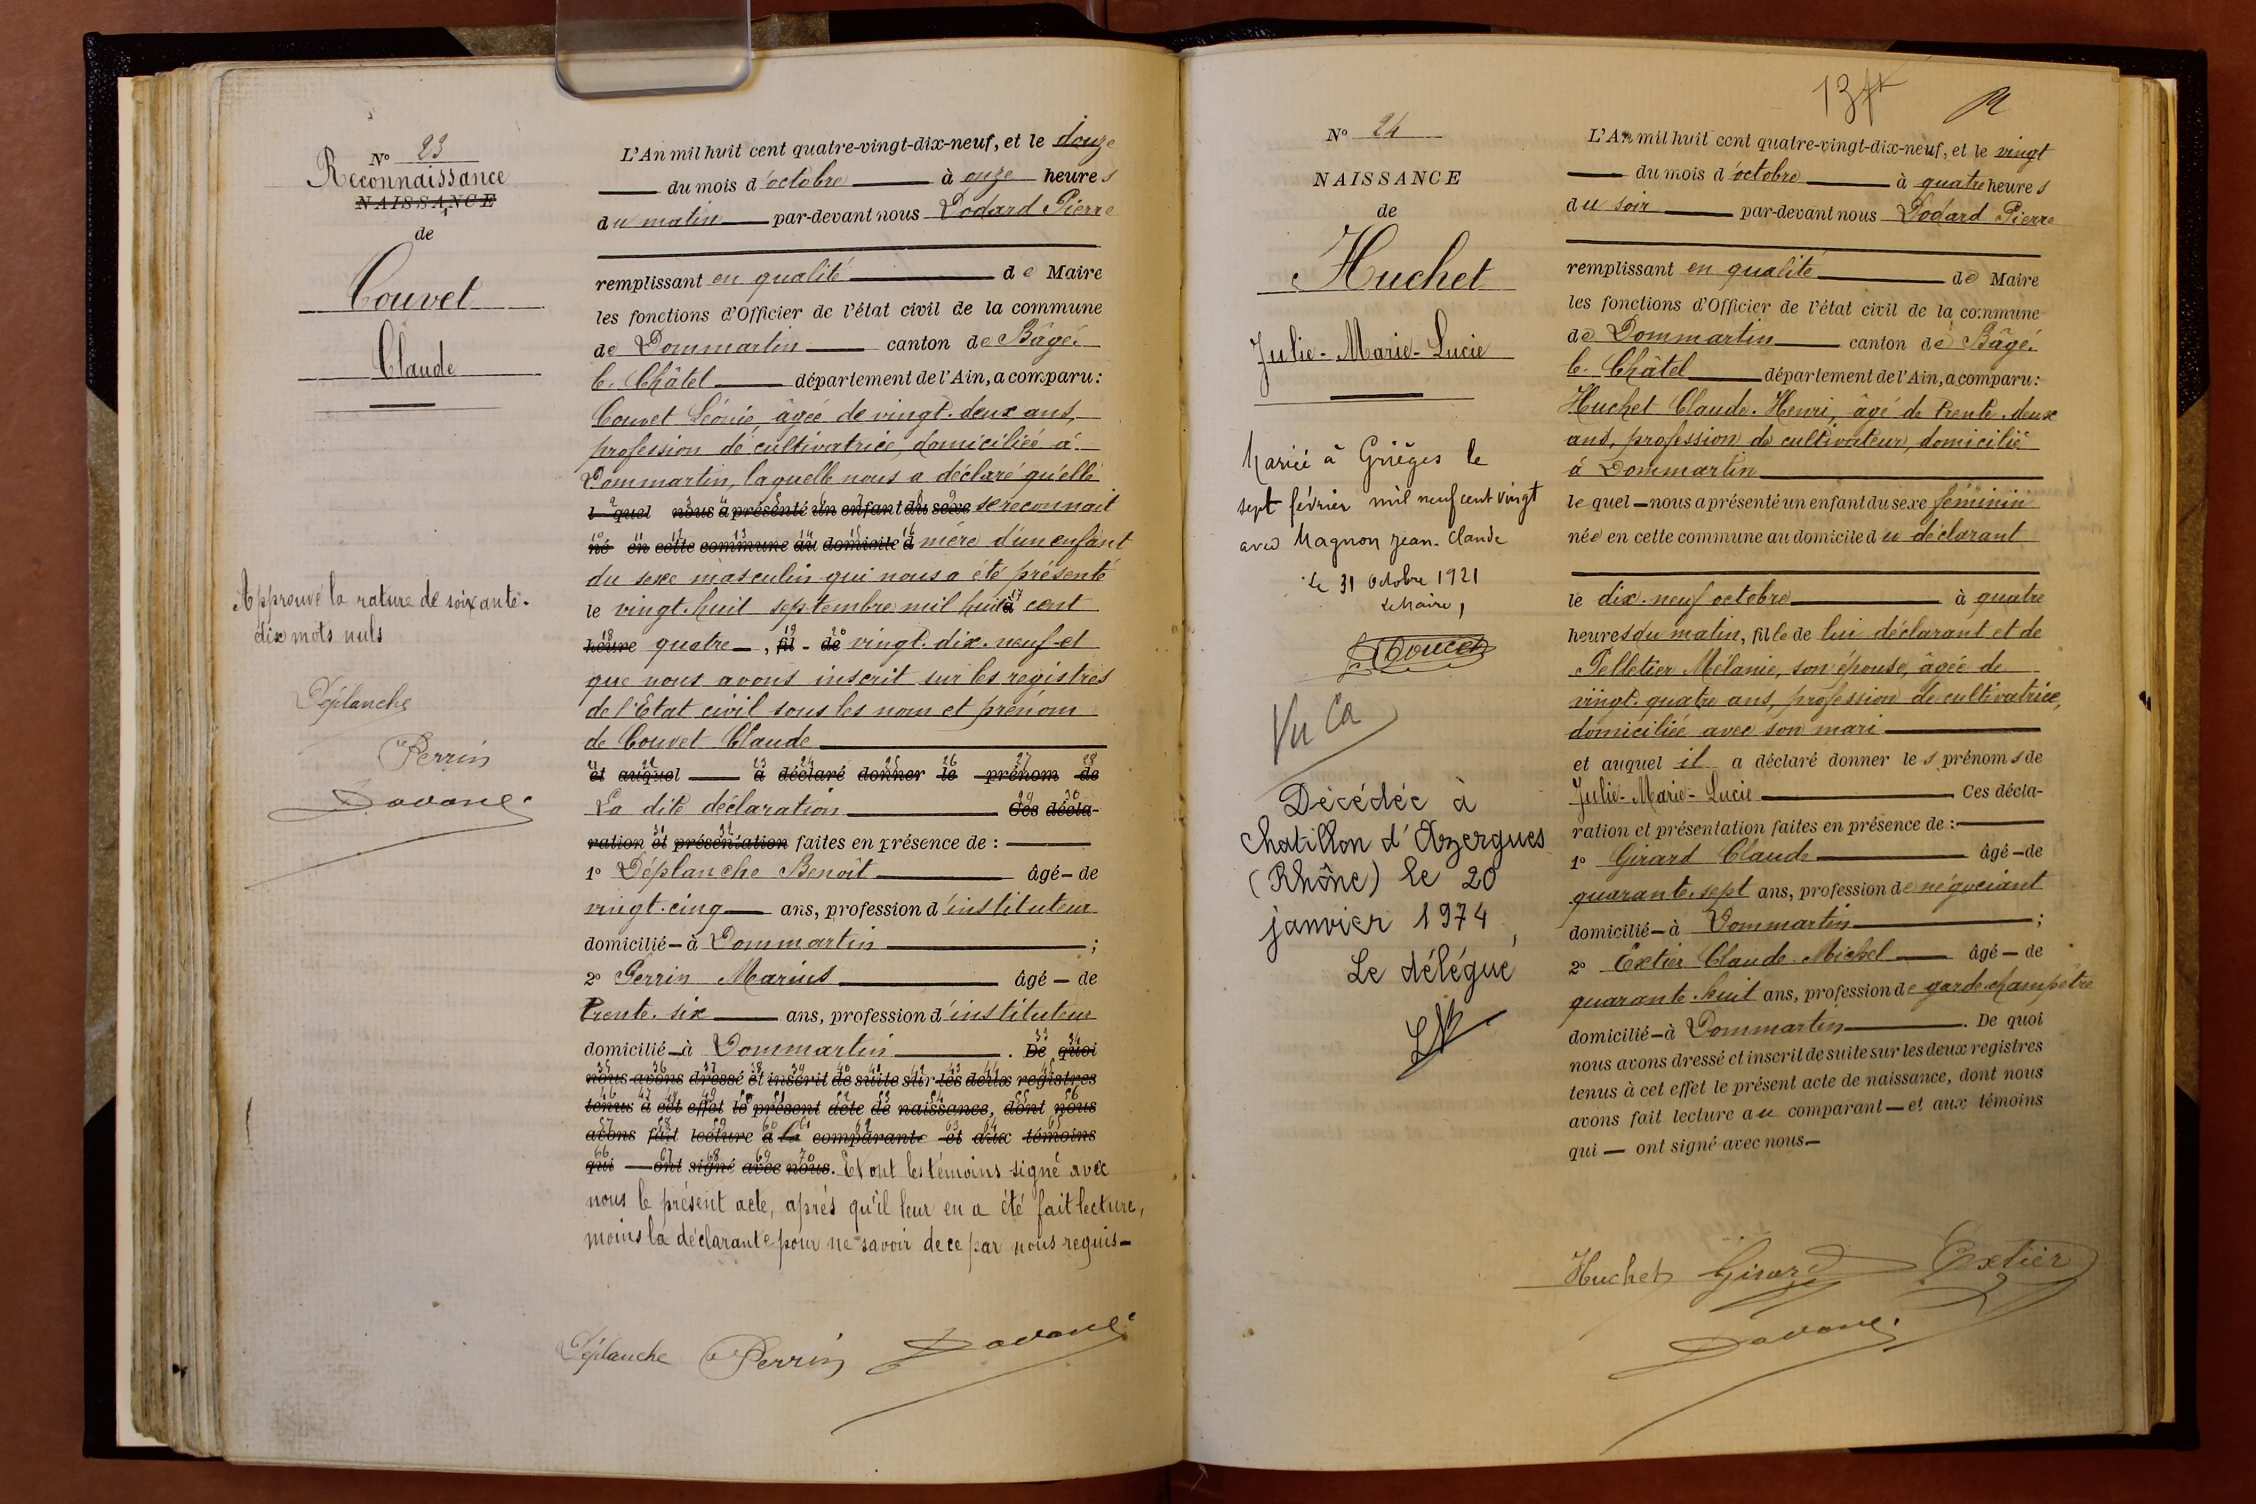 N° 23
Reconnaissance
NAISSANCE
de
Couvet
Claude
Approuvé la rature de soixante-
dix mots nuls
Déplanche
Perrin
L'An mil huit cent quatre-vingt-dix-neuf, et le douze
du mois d'octobre à onze heures
du matin par-devant nous Dodard Pierre
remplissant en qualité de Maire
les fonctions d'Officier de l'état civil de la commune
de Dommartin canton de Bâgé-
le-Châtel département de l'Ain, a comparu:
Couvet Léonie, âgée de vingt-deux ans,
profession de cultivatrice, domiciliée à
Dommartin, laquelle nous a déclaré qu'elle
l quel nous a présenté un enfant du sexe se reconnait
né en cette commune au domicile d mère d'un enfant
du sexe masculin qui nous a été présenté
le vingt-huit septembre mil huit à cent
heure quatre, fil de vingt-dix-neuf et
que nous avons inscrit sur les registres
de l'Etat civil sous les nom et prénom
de Couvet Claude
et auquel a déclaré donner le prénom de
La dite déclaration Ces décla-
ration et présentation faites en présence de :
1° Déplanche Benoît âgé de
vingt-cinq ans, profession d'instituteur
domicilié à Dommartin ;
2° Perrin Marius âgé de
trente-six ans, profession d'instituteur
domicilié à Dommartin . De quoi
nous avons dressé et inscrit de suite sur les deux registres
tenus à cet effet le présent acte de naissance, dont nous
avons fait lecture à la comparante et aux témoins
qui ont signé avec nous. Et ont les témoins signé avec
nous le présent acte, après qu'il leur en a été fait lecture,
moins la déclarante pour ne savoir de ce par nous requis
Déplanche Perrin
N° 24
NAISSANCE
de
Huchet
Julie-Marie-Lucie
Mariée à Grièges le
sept février mil neuf cent vingt
avec Magnon Jean-Claude
Le 31 Octobre 1921
Le Maire,
Vu Ca
Décédée à
Chatillon d'Azergues
(Rhône) le 20
janvier 1974,
Le délégué
L'An mil huit cent quatre-vingt-dix-neuf, et le vingt
du mois d'octobre à quatre heures
du soir par-devant nous Dodard Pierre
remplissant en qualité de Maire
les fonctions d'Officier de l'état civil de la commune
de Dommartin canton de Bâgé-
le-Châtel département de l'Ain, a comparu:
Huchet Claude-Henri, âgé de trente-deux
ans, profession de cultivateur, domicilié
à Dommartin
le quel nous a présenté un enfant du sexe féminin
née en cette commune au domicile du déclarant
le dix-neuf octobre à quatre
heures du matin, fille de lui déclarant et de
Pelletier Mélanie, son épouse, âgée de
vingt-quatre ans, profession de cultivatrice,
domiciliée avec son mari
et auquel il a déclaré donner les prénoms de
Julie-Marie-Lucie Ces décla-
ration et présentation faites en présence de :
1° Girard Claude âgé de
quarante-sept ans, profession de négociant
domicilié à Dommartin ;
2° Extier Claude-Michel âgé de
quarante-huit ans, profession de garde-champêtre
domicilié à Dommartin . De quoi
nous avons dressé et inscrit de suite sur les deux registres
tenus à cet effet le présent acte de naissance, dont nous
avons fait lecture au comparant et aux témoins
qui ont signé avec nous
Huchet Girard Extier